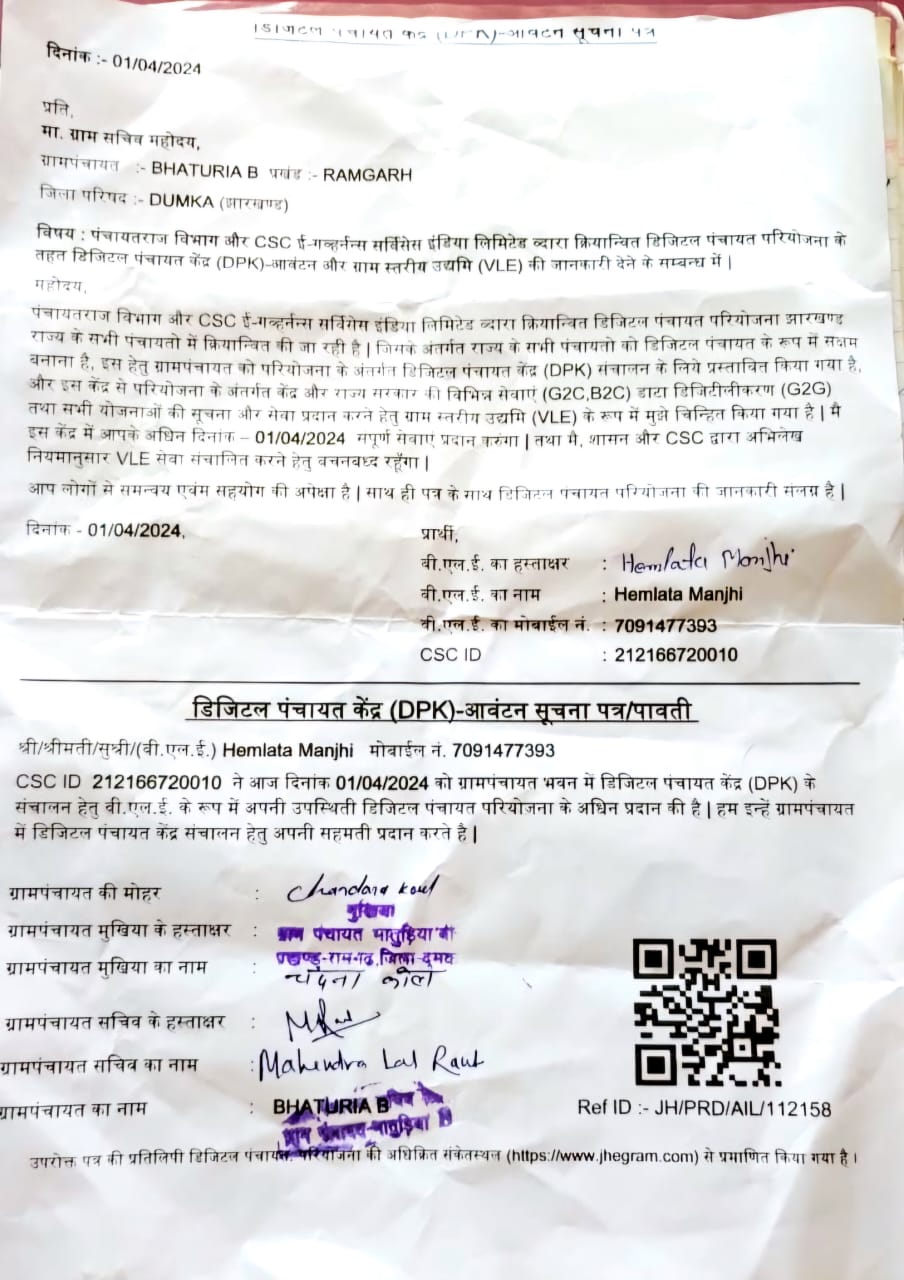 डिजिटल पंचायत केंद्र (DPK)-आवंटन सूचना पत्र
दिनांक :- 01/04/2024
प्रति,
मा. ग्राम सचिव महोदय,
ग्रामपंचायत :- BHATURIA B प्रखंड :- RAMGARH
जिला परिषद :- DUMKA (झारखण्ड)
विषय : पंचायतराज विभाग और CSC ई-गव्हर्नन्स सर्विसेस इंडिया लिमिटेड व्दारा क्रियान्वित डिजिटल पंचायत परियोजना के
तहत डिजिटल पंचायत केंद्र (DPK)-आवंटन और ग्राम स्तरीय उद्यमि (VLE) की जानकारी देने के सम्बन्ध में |
महोदय,
पंचायतराज विभाग और CSC ई-गव्हर्नन्स सर्विसेस इंडिया लिमिटेड व्दारा क्रियान्वित डिजिटल पंचायत परियोजना झारखण्ड
राज्य के सभी पंचायतो में क्रियान्वित की जा रही है | जिसके अंतर्गत राज्य के सभी पंचायतो को डिजिटल पंचायत के रूप में सक्षम
बनाना है, इस हेतु ग्रामपंचायत को परियोजना के अंतर्गत डिजिटल पंचायत केंद्र (DPK) संचालन के लिये प्रस्तावित किया गया है,
और इस केंद्र से परियोजना के अंतर्गत केंद्र और राज्य सरकार की विभिन्न सेवाएं (G2C,B2C) डाटा डिजिटीलीकरण (G2G)
तथा सभी योजनाओं की सूचना और सेवा प्रदान करने हेतु ग्राम स्तरीय उद्यमि (VLE) के रूप में मुझे चिन्हित किया गया है | मै
इस केंद्र में आपके अधिन दिनांक – 01/04/2024 संपूर्ण सेवाए प्रदान करुंगा | तथा मै, शासन और CSC द्वारा अभिलेख
नियमानुसार VLE सेवा संचालित करने हेतु वचनबध्द रहूँगा |
आप लोगों से समन्वय एवंम सहयोग की अपेक्षा है | साथ ही पत्र के साथ डिजिटल पंचायत परियोजना की जानकारी संलग्न है |
दिनांक - 01/04/2024,
प्रार्थी,
वी.एल.ई. का हस्ताक्षर : Hemlata Manjhi
वी.एल.ई. का नाम : Hemlata Manjhi
वी.एल.ई. का मोबाईल नं. : 7091477393
CSC ID : 212166720010
डिजिटल पंचायत केंद्र (DPK)-आवंटन सूचना पत्र/पावती
श्री/श्रीमती/सुश्री/(वी.एल.ई.) Hemlata Manjhi मोबाईल नं. 7091477393
CSC ID 212166720010 ने आज दिनांक 01/04/2024 को ग्रामपंचायत भवन में डिजिटल पंचायत केंद्र (DPK) के
संचालन हेतु वी.एल.ई. के रूप में अपनी उपस्थिती डिजिटल पंचायत परियोजना के अधिन प्रदान की है | हम इन्हें ग्रामपंचायत
में डिजिटल पंचायत केंद्र संचालन हेतु अपनी सहमती प्रदान करते है |
ग्रामपंचायत की मोहर : Chandana Koul
मुखिया
ग्रामपंचायत मुखिया के हस्ताक्षर : ग्राम पंचायत भातुड़िया बी
प्रखण्ड-रामगढ़, जिला-दुमका
ग्रामपंचायत मुखिया का नाम : चंदना कोल
ग्रामपंचायत सचिव के हस्ताक्षर :
ग्रामपंचायत सचिव का नाम : Mahendra Lal Raut
ग्रामपंचायत का नाम : BHATURIA B
ग्राम पंचायत-भातुड़िया B
Ref ID :- JH/PRD/AIL/112158
उपरोक्त पत्र की प्रतिलिपी डिजिटल पंचायत परियोजना की अधिक्रित संकेतस्थल (https://www.jhegram.com) से प्रमाणित किया गया है |